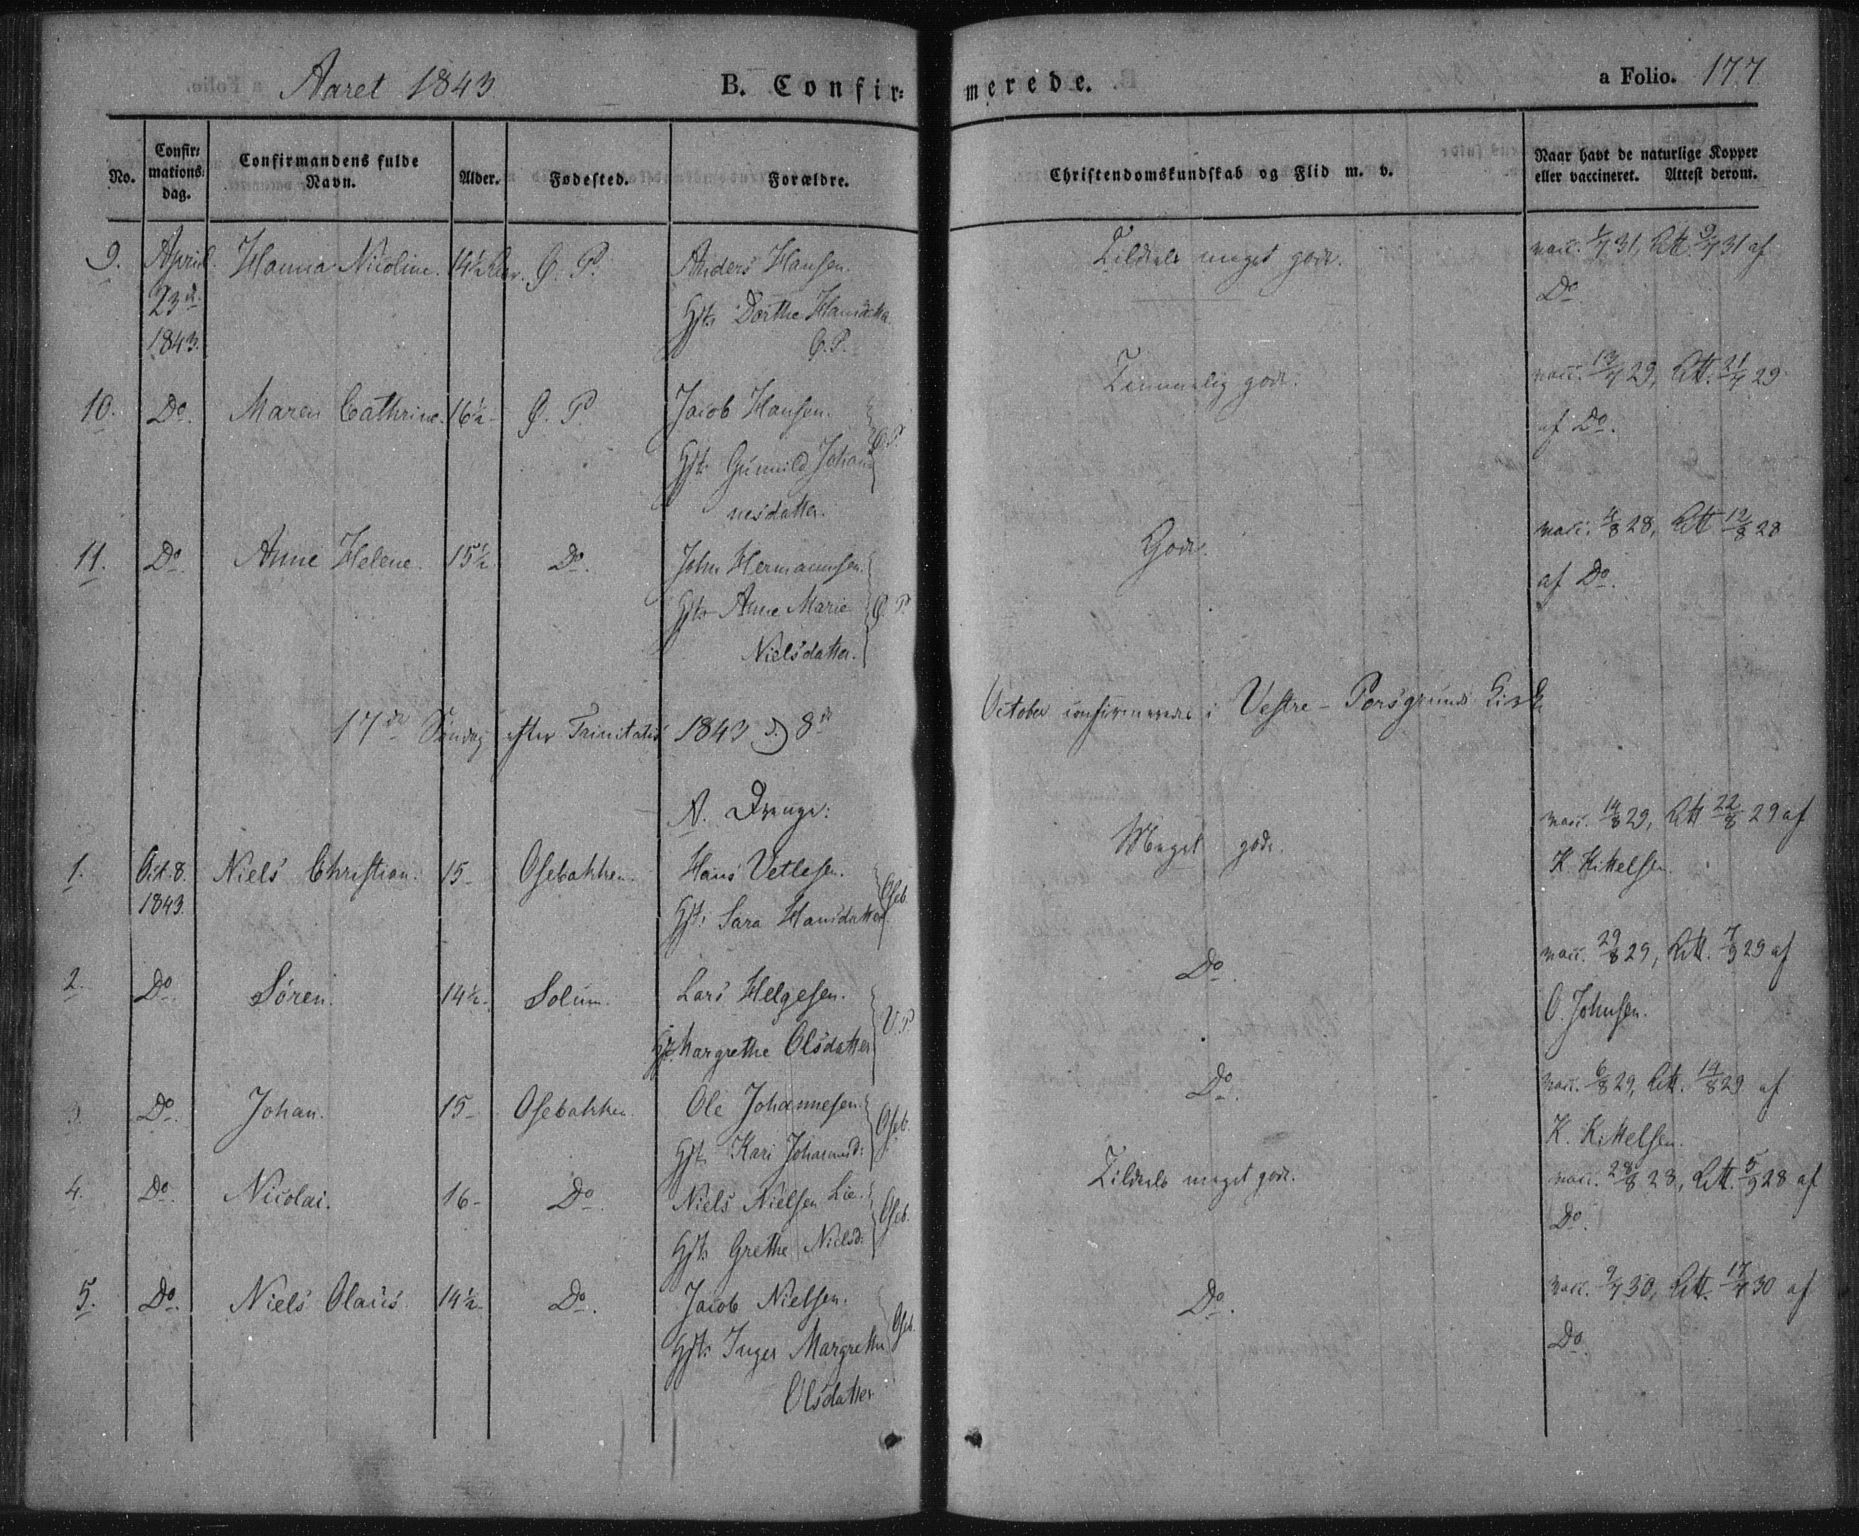 Aaret 1843. B. Confir= merede. a Folio. 177
No. Confir: mations: dag. Confirmandens fulde Navn. Alder. Fødested. Forældre. Christendomskundskab og Flid m. v. Naar havt de naturlige Kopper eller vaccineret. Attest derom.
9. April Hanna Nicoline. 14½ Ø. P. Anders Hansen. Tildeels meget godt. vacc. 31, Att. 31 af
23de Hstr Dorthe Hansdatter Do
1843. Ø. P.
10. Do. Maren Cathrine. 16½ Ø. P. Jacob Hansen. Temmelig godt. vacc. 13/7 29, Att. 21/7 29
Hstr Gunnild Johan Ø. P. af Do.
nesdatter.
11. Do. Anne Helene. 15½ Do. John Hermannsen. Godt. vacc. 4/8 28, Att 12/8 28
Hstr Anne Marie Ø. P. af Do.
Nielsdatter.
17de Søndag efter Trinitatis 1843 d: 8de October confirmerede i Vestre-Porsgrunds Kirke
A. Drenge:
1. Oct. 8. Niels Christian. 15 Osebakken. Hans Vetlesen. Oseb. Meget godt. vacc. 14/8 29, Att 22/8 29 af
1843. Hstr Sara Hansdatter K. Kittelsen.
2. Do. Søren. 14½ Solum. Lars Helgesen. V. P. Do. vacc. 29/8 29, Att. 7/9 29 af
Hstr Margrethe Olsdatter O. Johnsen.
3. Do. Johan. 15 Osebakken. Ole Johannesen Oseb. Do. vacc. 6/8 29, Att. 14/8 29 af
Hstr Kari Johannsd: K. Kittelsen.
4. Do. Nicolai. 16 Do Niels Nielsen Lie. Oseb. Tildeels meget godt. vacc. 28/8 28, Att. 5/9 28 af
Hstr Grethe Nielsd: Do.
5. Do. Niels Olaus. 14½ Do. Jacob Nielsen. Oseb. Do. vacc. 9/7 30, Att. 17/7 30 af
Hstr Inger Margrethe Do.
Olsdatter